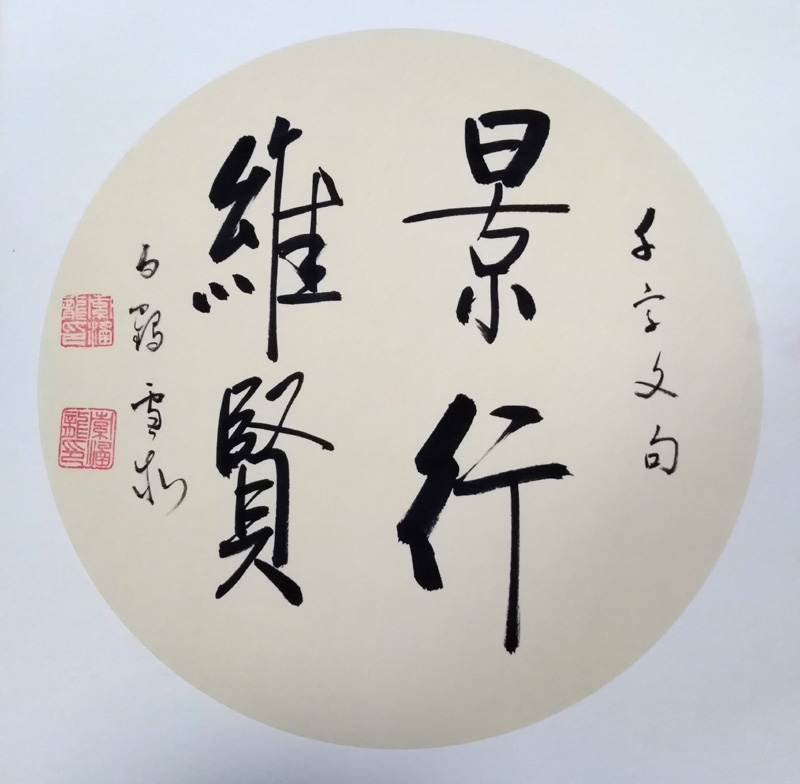 千字文句
景行
維賢
白鶴雪松